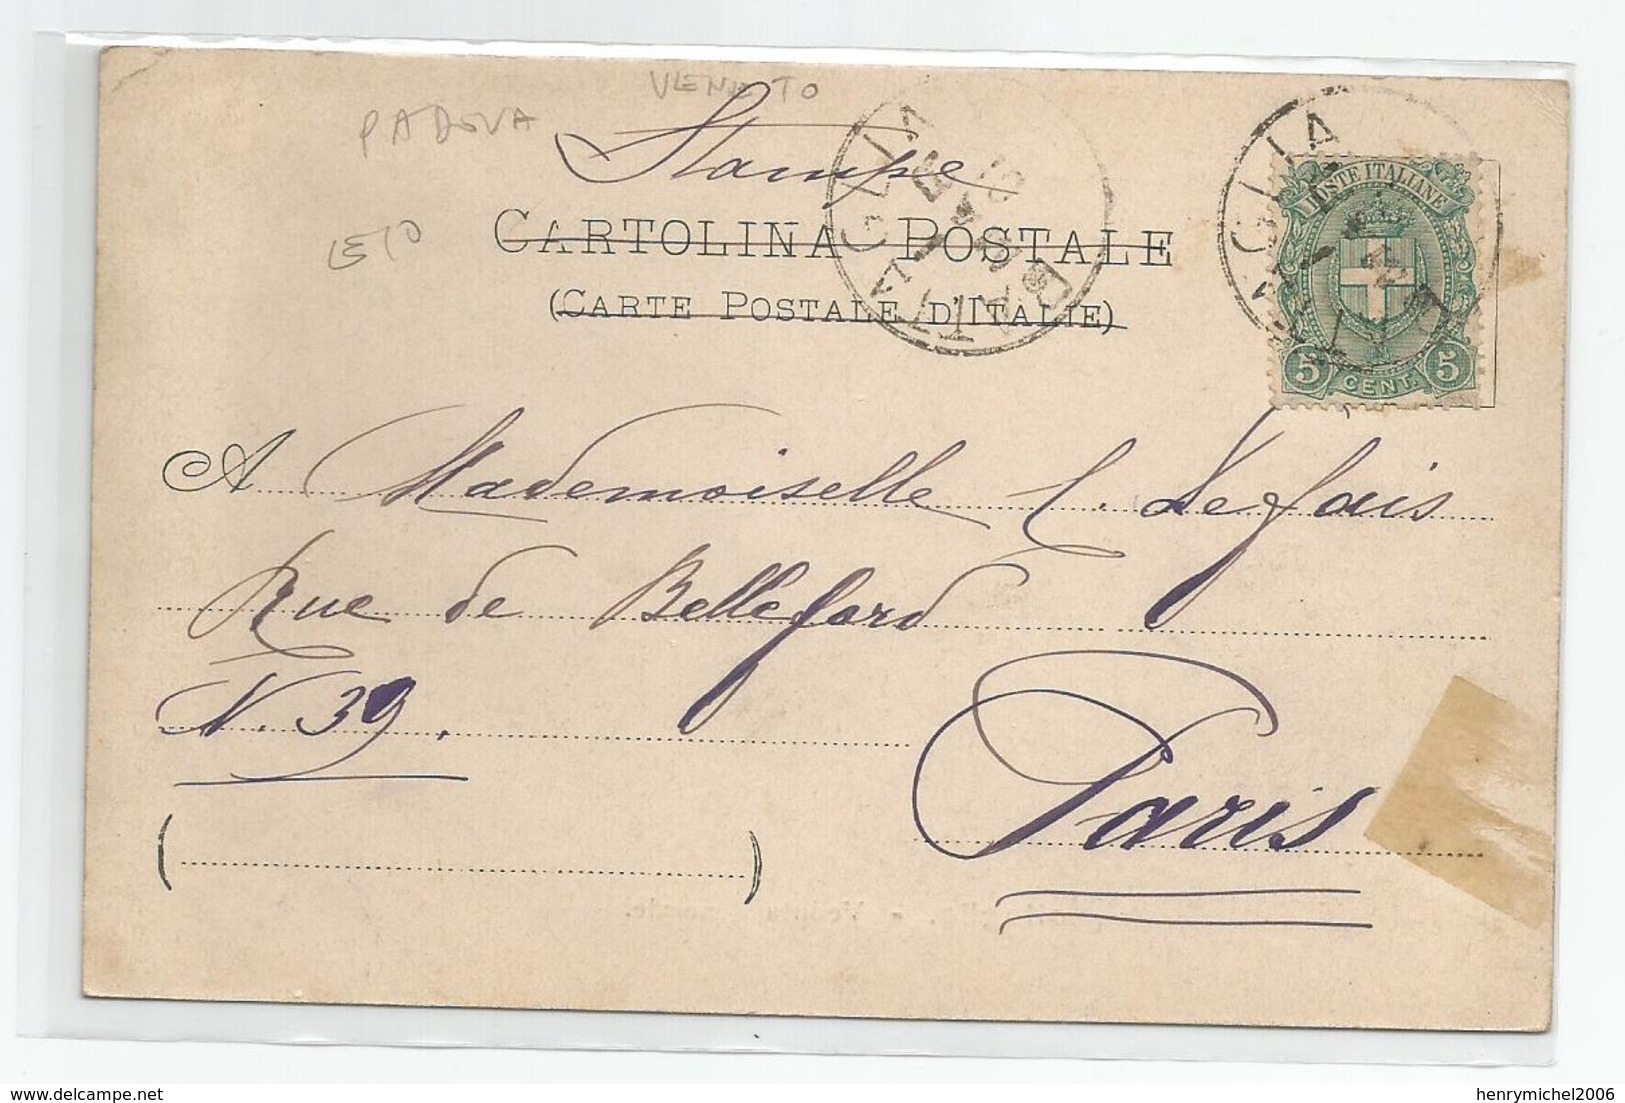 VENETO
PADOVA
Stampe
CARTOLINA POSTALE
(CARTE POSTALE D'ITALIE)
POSTE ITALIANE
5 CENT. 5
BATTAGLIA
BATTAGLIA
A Mademoiselle C. Defais
Rue de Bellefond
N. 39.
Paris
( )
henrymichel2006